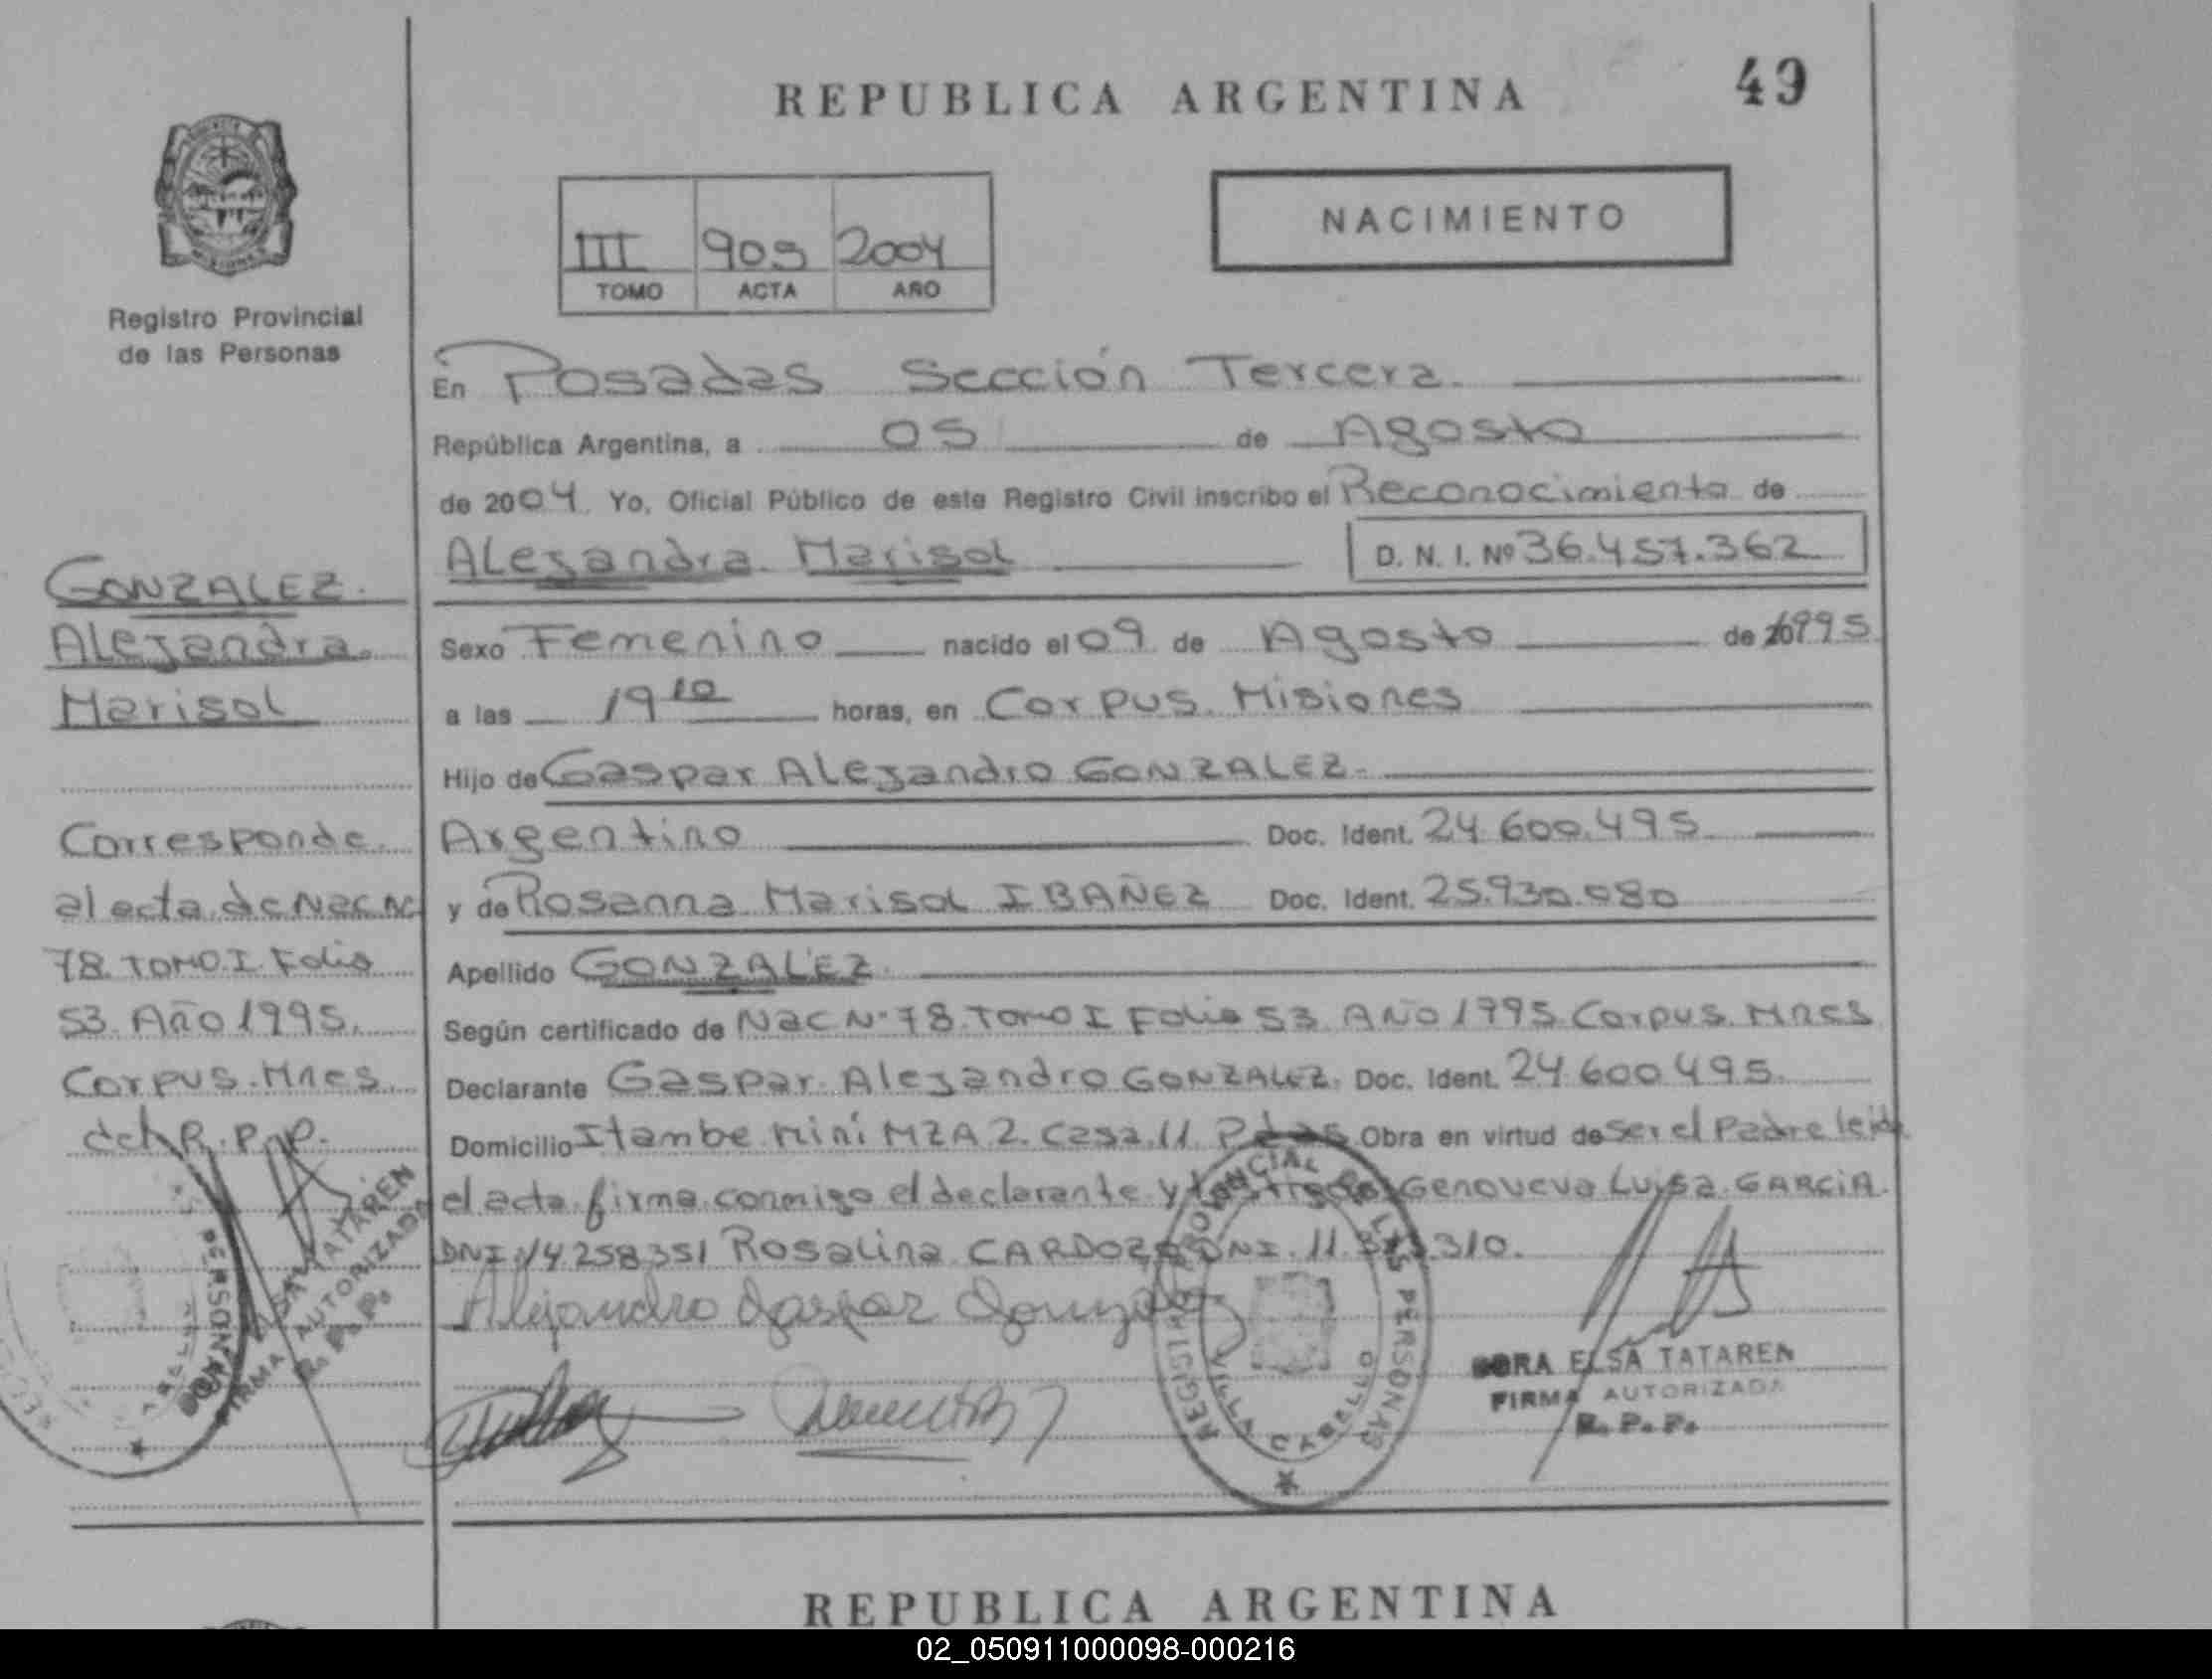 REPUBLICA ARGENTINA
49
Registro Provincial
de las Personas
III 905 2004
TOMO ACTA AÑO
NACIMIENTO
En Posadas Sección Tercera
República Argentina, a 05 de Agosto
de 2004. Yo, Oficial Público de este Registro Civil inscribo el Reconocimiento de
Alejandra Marisol D. N. I. Nº 36.457.362
Sexo Femenino nacido el 09 de Agosto de 1995
a las 19 10 horas, en Corpus. Misiones
Hijo de Gaspar Alejandro GONZALEZ
Argentino Doc. Ident. 24.600.495
y de Rosanna Marisol IBAÑEZ Doc. Ident. 25.930.080
Apellido GONZALEZ
Según certificado de Nac Nº 78 Tomo I Folio 53 Año 1995 Corpus. Mnes
Declarante Gaspar Alejandro GONZALEZ. Doc. Ident. 24.600.495
Domicilio Itambe Mini MZA 2. Casa 11 Pdas Obra en virtud de ser el Padre leida
el acta firma conmigo el declarante y testigos Genoveva Luisa GARCIA
DNI 14258351 Rosalina CARDOZO DNI. 11. 310.
Alejandro Gaspar Gonzalez
GONZALEZ
Alejandra
Marisol
Corresponde
al acta de Nac Nº
78 TOMO I Folio
53 Año 1995.
Corpus. Mnes.
del R. P. P.
REGISTRO PROVINCIAL DE LAS PERSONAS
VILLA CABELLO
DORA ELSA TATAREN
FIRMA AUTORIZADA
R. P. P.
PERSONAS
DORA ELSA TATAREN
FIRMA AUTORIZADA
R. P. P.
REPUBLICA ARGENTINA
02_050911000098-000216